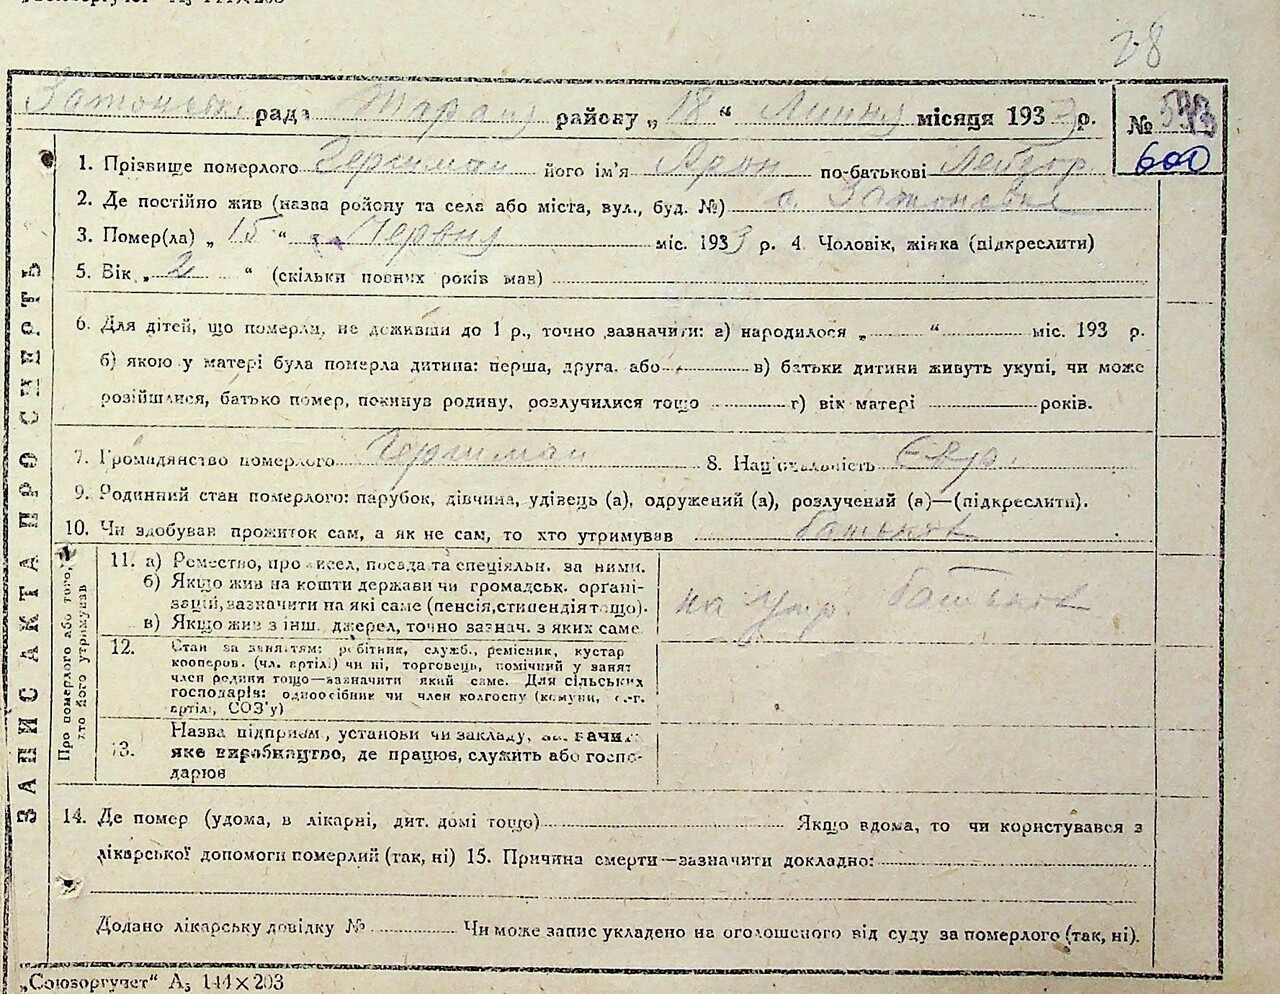 28
рада району „ 18 “ місяця 193 р. №
600
1. Прізвище померлого його ім'я Арон по-батькові Лейзор
2. Де постійно жив (назва ройону та села або міста, вул., буд. №) с.
3. Помер(ла) „ 15 “ Червня міс. 1933 р. 4. Чоловік, жінка (підкреслити)
5. Вік „ 2 “ (скільки повних років мав)
6. Для дітей, що померли, не доживши до 1 р., точно зазначити: а) народилося „ “ міс. 193 р.
б) якою у матері була померла дитина: перша, друга. або в) батьки дитини живуть укупі, чи може
розійшлися, батько помер, покинув родину, розлучилися тощо г) вік матері років.
7. Громадянство померлого 8. Національність Євр.
9. Родинний стан померлого: парубок, дівчина, удівець (а), одружений (а), розлучений (а)—(підкреслити).
10. Чи здобував прожиток сам, а як не сам, то хто утримував батьків
ЗАПИС АКТА ПРО СМЕРТЬ
Про померлого або того,
хто його утримував
11. а) Ремество, промисел, посада та спеціяльн. за ними.
б) Якщо жив на кошти держави чи громадськ. органі-
зацій, зазначити на які саме (пенсія, стипендія тощо).
в) Якщо жив з інш. джерел, точно зазнач. з яких саме
на утр. батьков
12. Стан за заняттям: робітник, служб., ремісник, кустар
кооперов. (чл. артілі) чи ні, торговець, помічний у занят
член родини тощо—зазначити який саме. Для сільських
господарів: одноосібник чи член колгоспу (комуни, с.-г.
артілі, СОЗ'у)
13. Назва підприєм., установи чи закладу, зазначит.
яке виробництво, де працює, служить або госпо-
дарює
14. Де помер (удома, в лікарні, дит. домі тощо) Якщо вдома, то чи користувався з
лікарської допомоги померлий (так, ні) 15. Причина смерти—зазначити докладно:
Додано лікарську довідку № Чи може запис укладено на оголошеного від суду за померлого (так, ні).
„Союзоргучет“ А₅ 144×203